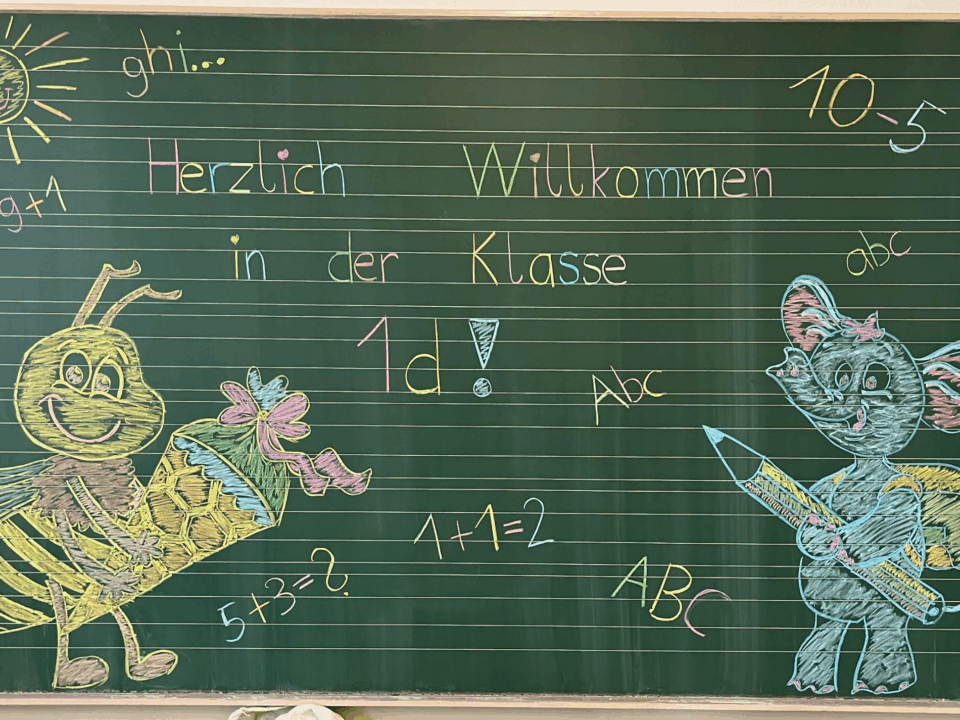 ghi...
10-5
Herzlich Willkommen
9+1
in der Klasse
abc
1d!
Abc
1+1=2
5+3=?
ABC